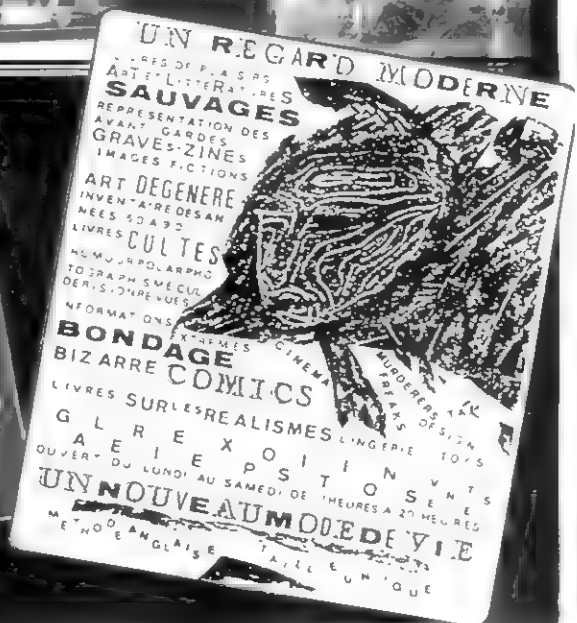 UN REGARD MODERNE
RES DE PLAISIRS
ART ET LITTERATURES
SAUVAGES
REPRESENTATION DES
AVANT GARDES
GRAVES-ZINES
IMAGES FICTIONS
ART DEGENERE
INVENTAIRE DES AN
NEES 50 A 90
LIVRES CULTES
HUMOUR POLAR PHO
TOGRAPHISME CUL
DERISION REVUES
INFORMATIONS EXTREMES CINEMA
BONDAGE
BIZARRE COMICS
MURDERERS
FREAKS
DESIGN
LIVRES SURLESREALISMES LINGERIE TOYS
GALERIE EXPOSITION VENTES
OUVERT DU LUNDI AU SAMEDI DE HEURES A 20 HEURES
UN NOUVEAU MODE DE VIE
METHODE ANGLAISE TAILLE UNIQUE